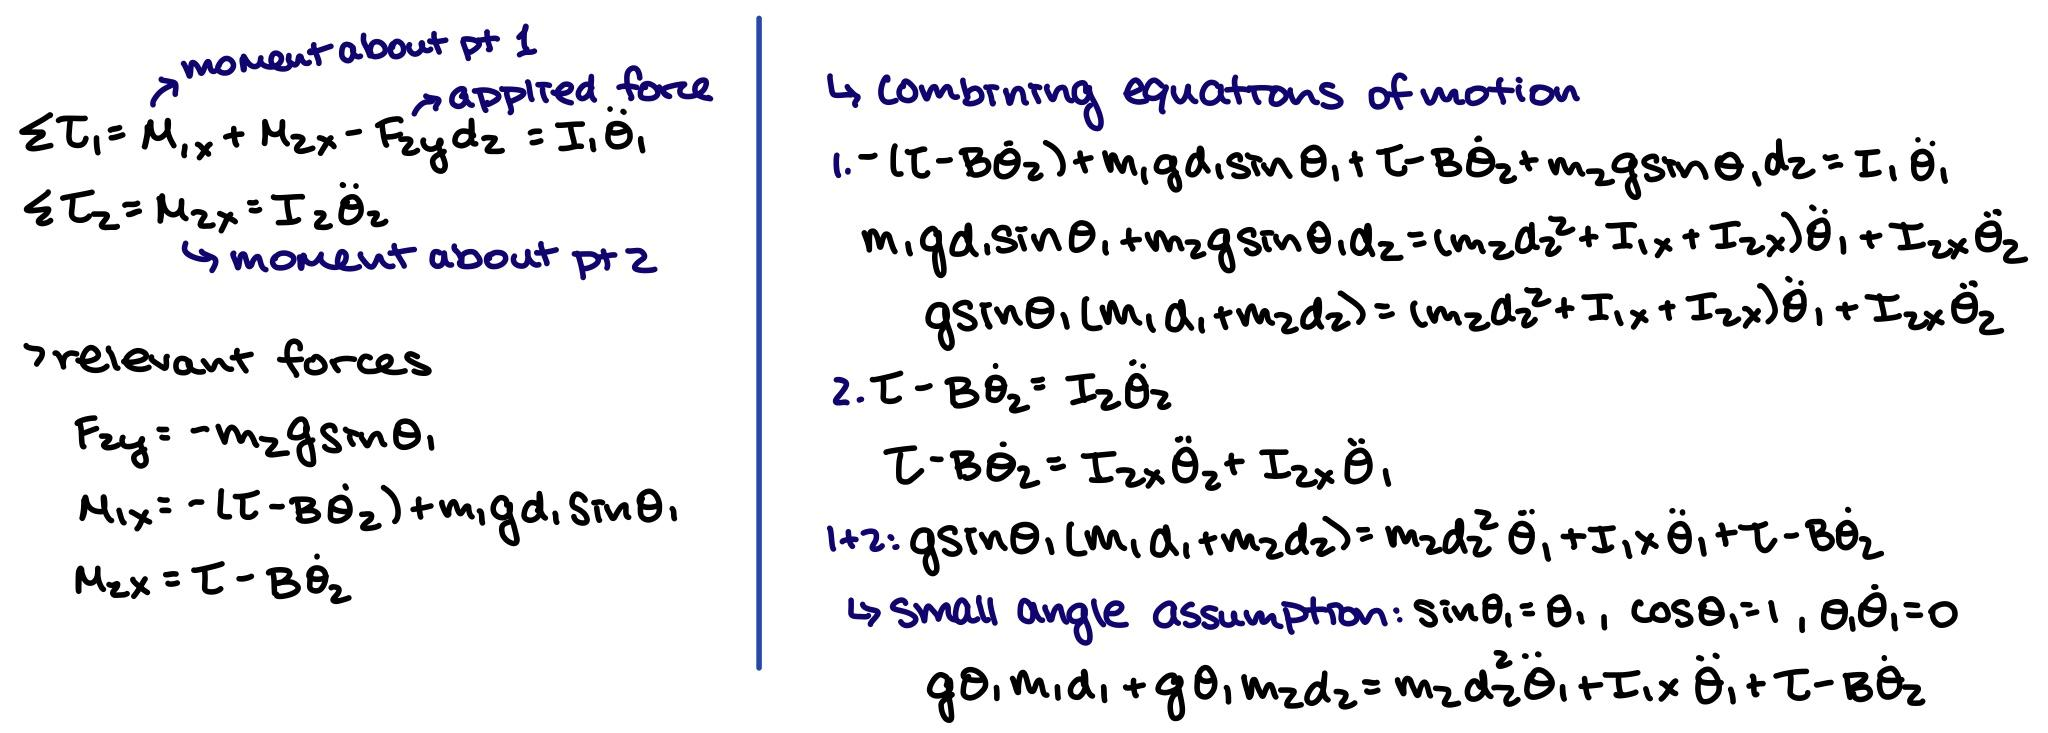 ↗moment about pt 1
↗applied force
ΣΤ₁ = M₁ₓ + M₂ₓ - F₂ᵧd₂ = I₁θ̈₁
ΣΤ₂ = M₂ₓ = I₂θ̈₂
↳ moment about pt 2
>relevant forces
F₂ᵧ = -m₂gsinθ₁
M₁ₓ = -(τ-Bθ̇₂)+m₁gd₁sinθ₁
M₂ₓ = τ - Bθ̇₂
↳ combining equations of motion
1. -(τ-Bθ̇₂)+m₁gd₁sinθ₁+τ-Bθ̇₂+m₂gsinθ₁d₂ = I₁θ̈₁
m₁gd₁sinθ₁+m₂gsinθ₁d₂ = (m₂d₂²+I₁ₓ+I₂ₓ)θ̈₁+I₂ₓθ̈₂
gsinθ₁(m₁d₁+m₂d₂) = (m₂d₂²+I₁ₓ+I₂ₓ)θ̈₁+I₂ₓθ̈₂
2. τ-Bθ̇₂ = I₂θ̈₂
τ-Bθ̇₂ = I₂ₓθ̈₂+I₂ₓθ̈₁
1+2: gsinθ₁(m₁d₁+m₂d₂) = m₂d₂²θ̈₁+I₁ₓθ̈₁+τ-Bθ̇₂
↳ small angle assumption: sinθ₁=θ₁, cosθ₁=1, θ₁θ̇₁=0
gθ₁m₁d₁+gθ₁m₂d₂ = m₂d₂²θ̈₁+I₁ₓθ̈₁+τ-Bθ̇₂